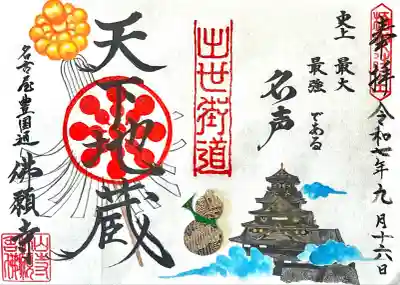 奉拝
令和七年九月十六日
史上最大
最強である
名声
出世街道
天下地蔵
名古屋豊国道
佛願寺